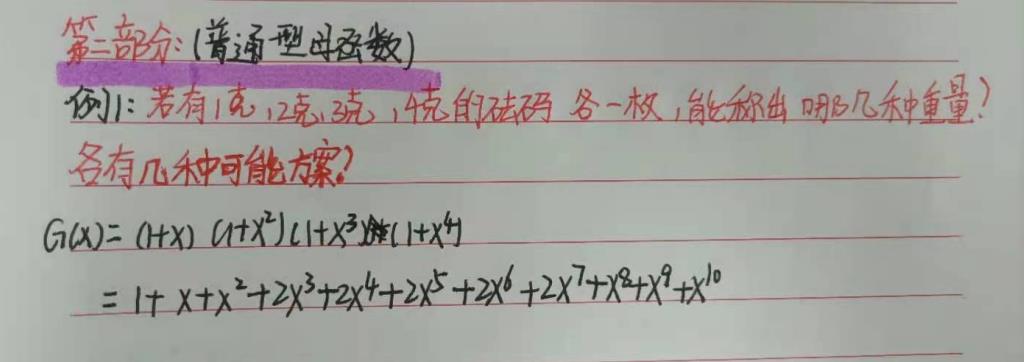 第二部分:(普通型母函数)
例1:若有1克,2克,3克,4克的砝码 各一枚,能称出哪几种重量?
各有几种可能方案?
G(x)= (1+x) (1+x²)(1+x³)(1+x⁴)
= 1+x+x²+2x³+2x⁴+2x⁵+2x⁶+2x⁷+x⁸+x⁹+x¹⁰